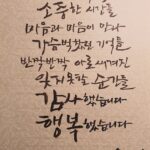 소중한 사람들
마음과 마음이 만나
가슴 벅찼던 기억들
반짝반짝 아로새겨진
잊지못할 순간들
감사했습니다
행복했습니다